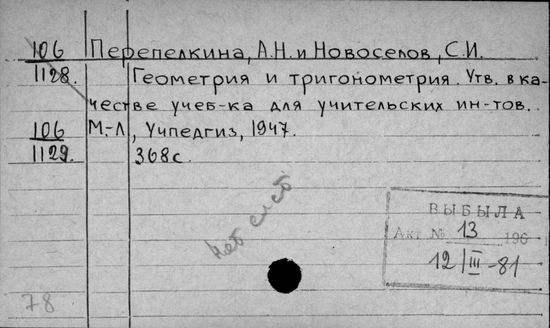 106 Перепелкина, А.Н. и Новоселов, С.И.
1128. Геометрия и тригонометрия. Утв. в ка-
честве учеб-ка для учительских ин-тов.
106 М.-Л., Учпедгиз, 1947.
1129. 368 с.
ВЫБЫЛА
Акт № 13 196
12/III-81
78